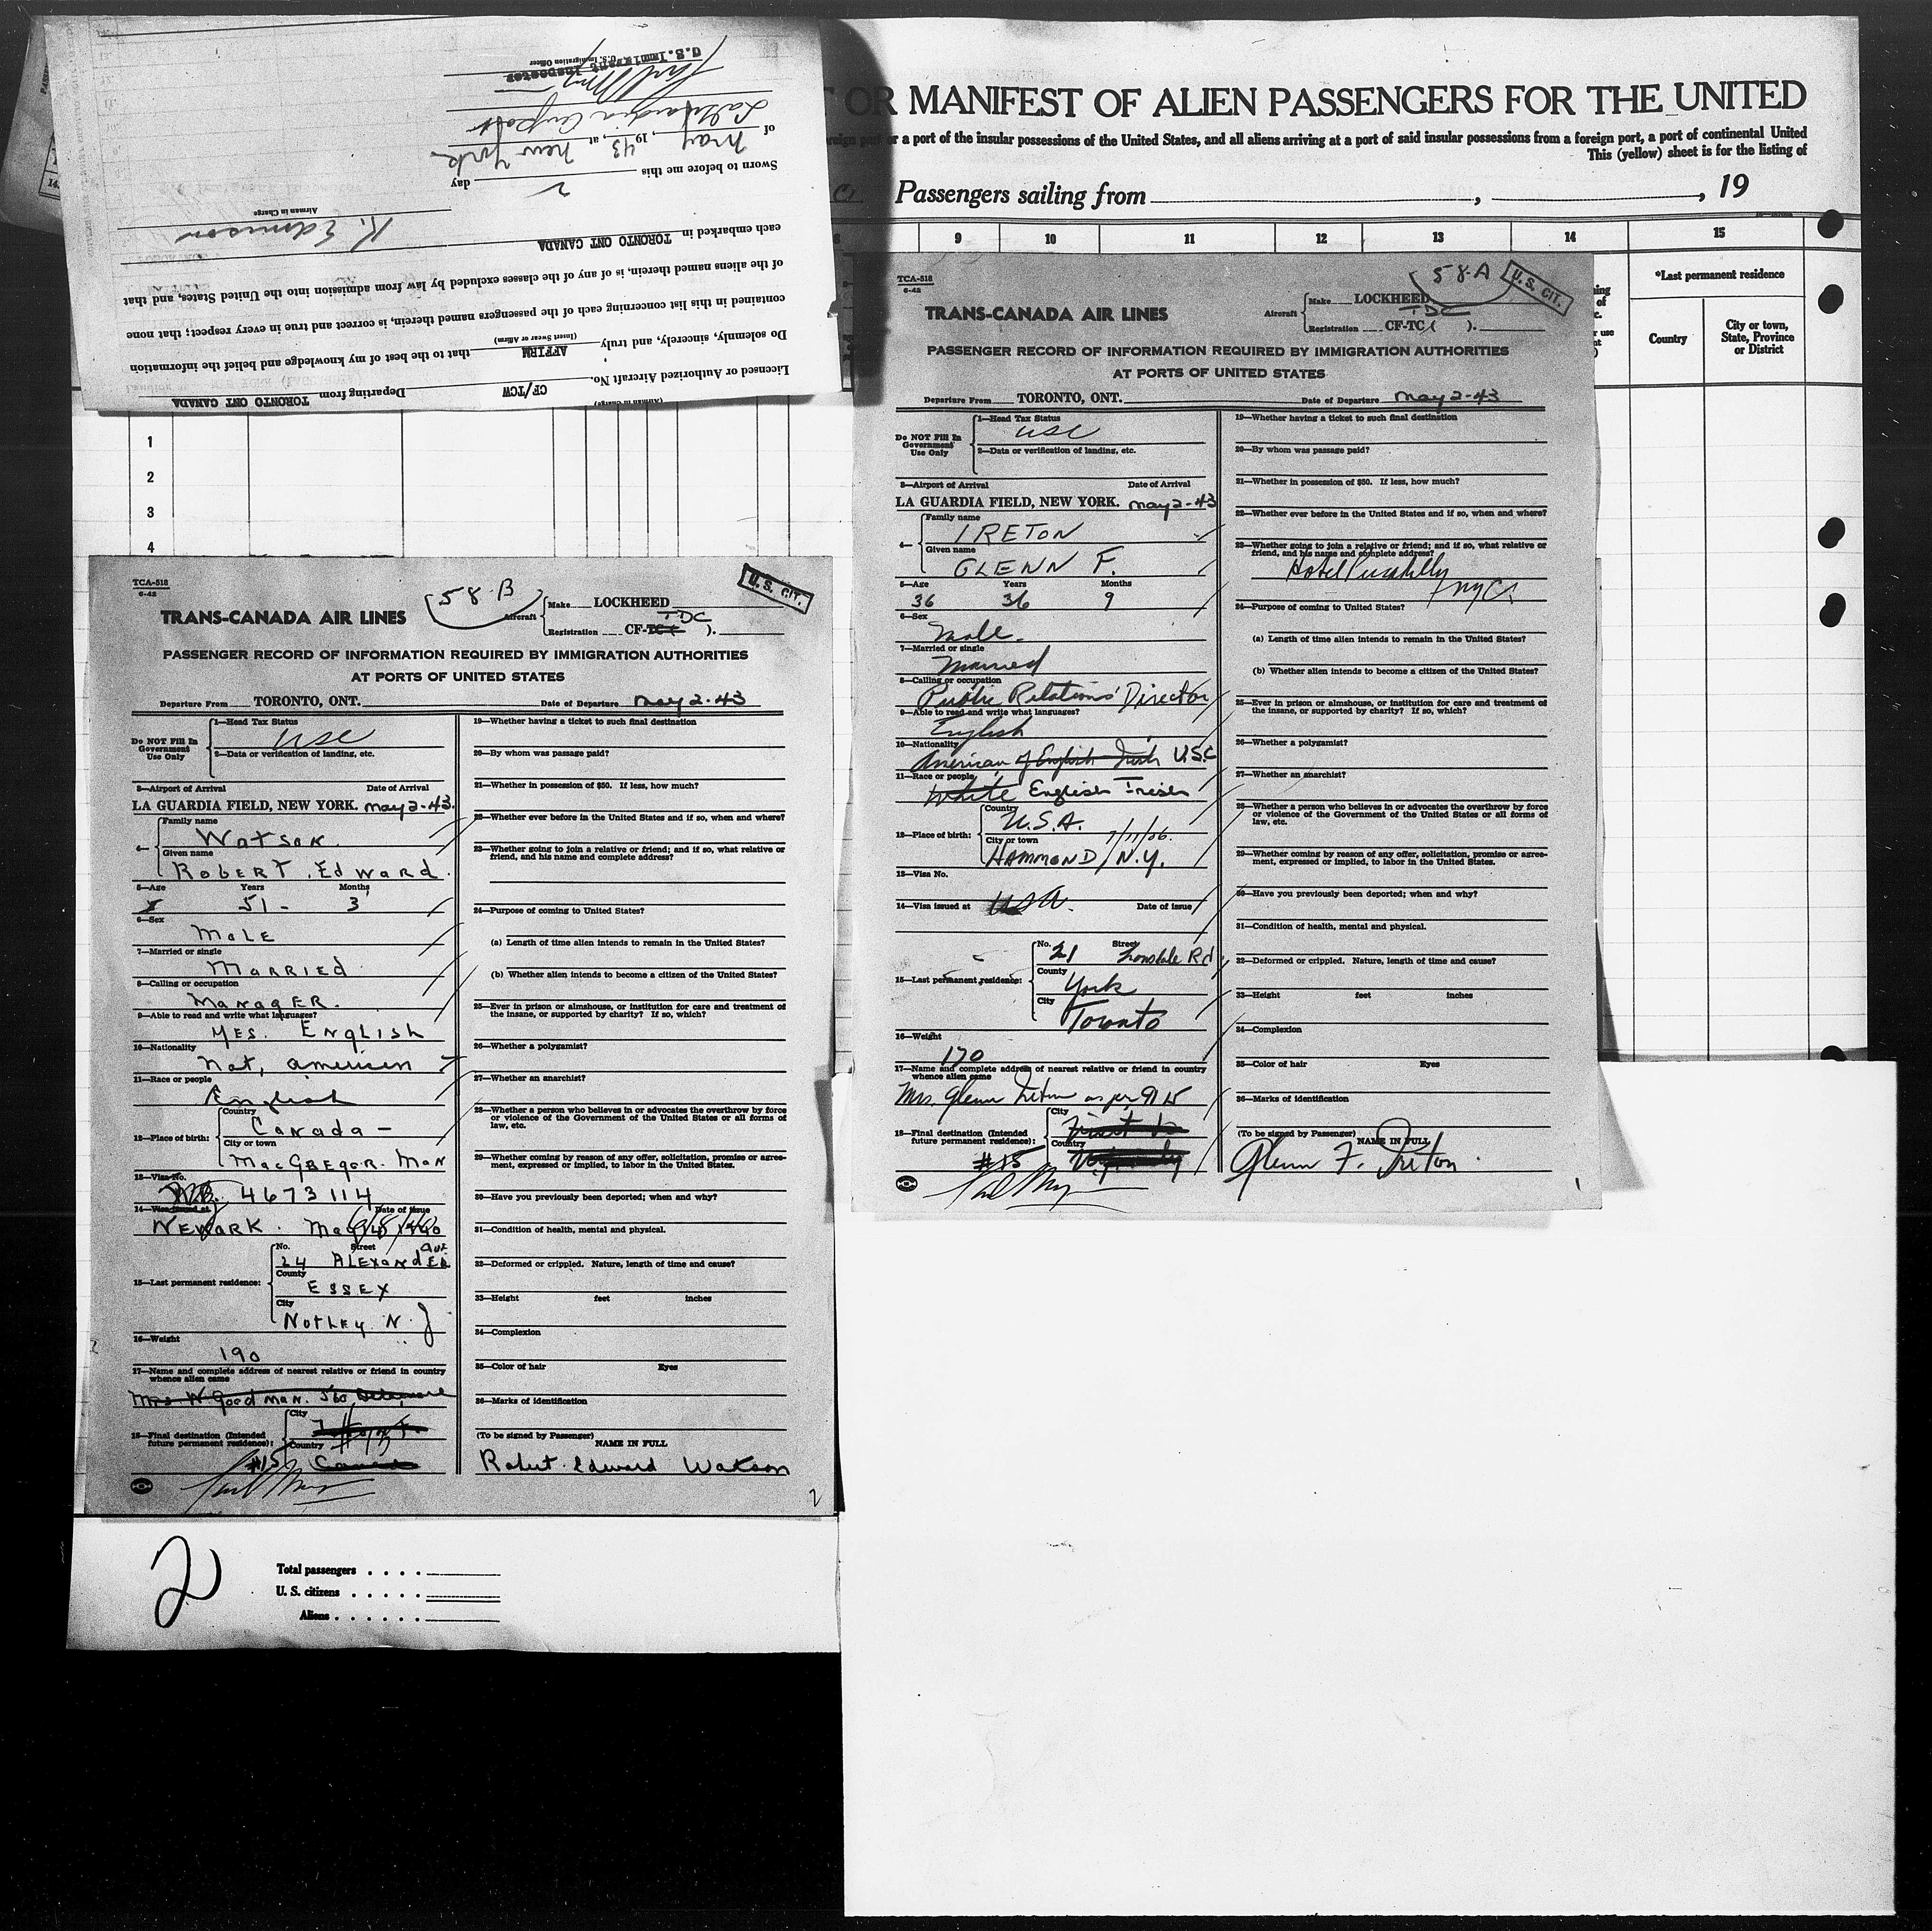 U.S. Immigrant Inspector
U.S. Immigration Officer
LaGuardia Airport
of May, 1943, at New York
Sworn to before me this 2 day
K. Edmison
Airman in Charge
each embarked in TORONTO ONT CANADA
of the aliens named therein, is of any of the classes excluded by law from admission into the United States, and that
contained in this list concerning each of the passengers named therein, is correct and true in every respect; that none
(Insert or Swear or Affirm)
Do solemnly, sincerely, and truly AFFIRM that to the best of my knowledge and belief the information
Licensed or Authorized Aircraft No. CF/TCW Departing from TORONTO ONT CANADA
(Airman in Charge)
OR MANIFEST OF ALIEN PASSENGERS FOR THE UNITED
or a port of the insular possessions of the United States, and all aliens arriving at a port of said insular possessions from a foreign port, a port of continental United
This (yellow) sheet is for the listing of
Passengers sailing from , , 19
9 10 11 12 13 14 15
*Last permanent residence
Country
City or town, State, Province or District
1
2
3
4
TCA-518
6-42
58-B
U.S. CIT.
TRANS-CANADA AIR LINES
Aircraft Make LOCKHEED
Registration CF-TC ( ). TDC
PASSENGER RECORD OF INFORMATION REQUIRED BY IMMIGRATION AUTHORITIES
AT PORTS OF UNITED STATES
Departure From TORONTO, ONT. Date of Departure May 2-43
Do NOT Fill In Government Use Only
1—Head Tax Status
USC
2—Data or verification of landing, etc.
3—Airport of Arrival Date of Arrival
LA GUARDIA FIELD, NEW YORK. May 2-43.
4— Family name
Watson
Given name
Robert Edward.
5—Age Years Months
51 - 3
6—Sex
Male
7—Married or single
Married
8—Calling or occupation
Manager.
9—Able to read and write what languages?
Yes. English
10—Nationality
Nat, American
11—Race or people
English
12—Place of birth: Country
Canada -
City or town
MacGregor. Man
13—Visa No.
4673114
14—Visa issued at Date of issue
Newark.
15—Last permanent residence: No. Street
24 Alexander Ave
County
Essex
City
Nutley N. J
16—Weight
190
17—Name and complete address of nearest relative or friend in country whence alien came
Mrs W Goodman. 560 Delaware
18—Final destination (Intended future permanent residence): City
Country
#15 Canada
19—Whether having a ticket to such final destination
20—By whom was passage paid?
21—Whether in possession of $50. If less, how much?
22—Whether ever before in the United States and if so, when and where?
23—Whether going to join a relative or friend; and if so, what relative or friend, and his name and complete address?
24—Purpose of coming to United States?
(a) Length of time alien intends to remain in the United States?
(b) Whether alien intends to become a citizen of the United States?
25—Ever in prison or almshouse, or institution for care and treatment of the insane, or supported by charity? If so, which?
26—Whether a polygamist?
27—Whether an anarchist?
28—Whether a person who believes in or advocates the overthrow by force or violence of the Government of the United States or all forms of law, etc.
29—Whether coming by reason of any offer, solicitation, promise or agreement, expressed or implied, to labor in the United States.
30—Have you previously been deported; when and why?
31—Condition of health, mental and physical.
32—Deformed or crippled. Nature, length of time and cause?
33—Height feet inches
34—Complexion
35—Color of hair Eyes
36—Marks of identification
(To be signed by Passenger)
NAME IN FULL
Robert Edward Watson
2
2
Total passengers
U. S. citizens
Aliens
TCA-518
6-42
58-A
U.S. CIT.
TRANS-CANADA AIR LINES
Aircraft Make LOCKHEED
Registration CF-TC ( ). TDC
PASSENGER RECORD OF INFORMATION REQUIRED BY IMMIGRATION AUTHORITIES
AT PORTS OF UNITED STATES
Departure From TORONTO, ONT. Date of Departure May 2-43
Do NOT Fill In Government Use Only
1—Head Tax Status
USC
2—Data or verification of landing, etc.
3—Airport of Arrival Date of Arrival
LA GUARDIA FIELD, NEW YORK. May 2-43
4— Family name
IRETON
Given name
GLENN F.
5—Age Years Months
36 36 9
6—Sex
Male.
7—Married or single
Married
8—Calling or occupation
Public Relations Director
9—Able to read and write what languages?
English
10—Nationality
American of English Irish U.S.C
11—Race or people
White English Irish
12—Place of birth: Country
U.S.A.
City or town
HAMMOND, N.Y.
13—Visa No.
14—Visa issued at Date of issue
USA.
15—Last permanent residence: No. Street
21 Lonsdale Rd
County
York
City
Toronto
16—Weight
170
17—Name and complete address of nearest relative or friend in country whence alien came
Mrs. Glenn Ireton as per # 15
18—Final destination (Intended future permanent residence): City
Country
#15
19—Whether having a ticket to such final destination
20—By whom was passage paid?
21—Whether in possession of $50. If less, how much?
22—Whether ever before in the United States and if so, when and where?
23—Whether going to join a relative or friend; and if so, what relative or friend, and his name and complete address?
Hotel Piccadilly
NYC
24—Purpose of coming to United States?
(a) Length of time alien intends to remain in the United States?
(b) Whether alien intends to become a citizen of the United States?
25—Ever in prison or almshouse, or institution for care and treatment of the insane, or supported by charity? If so, which?
26—Whether a polygamist?
27—Whether an anarchist?
28—Whether a person who believes in or advocates the overthrow by force or violence of the Government of the United States or all forms of law, etc.
29—Whether coming by reason of any offer, solicitation, promise or agreement, expressed or implied, to labor in the United States.
30—Have you previously been deported; when and why?
31—Condition of health, mental and physical.
32—Deformed or crippled. Nature, length of time and cause?
33—Height feet inches
34—Complexion
35—Color of hair Eyes
36—Marks of identification
(To be signed by Passenger)
NAME IN FULL
Glenn F. Ireton.
1